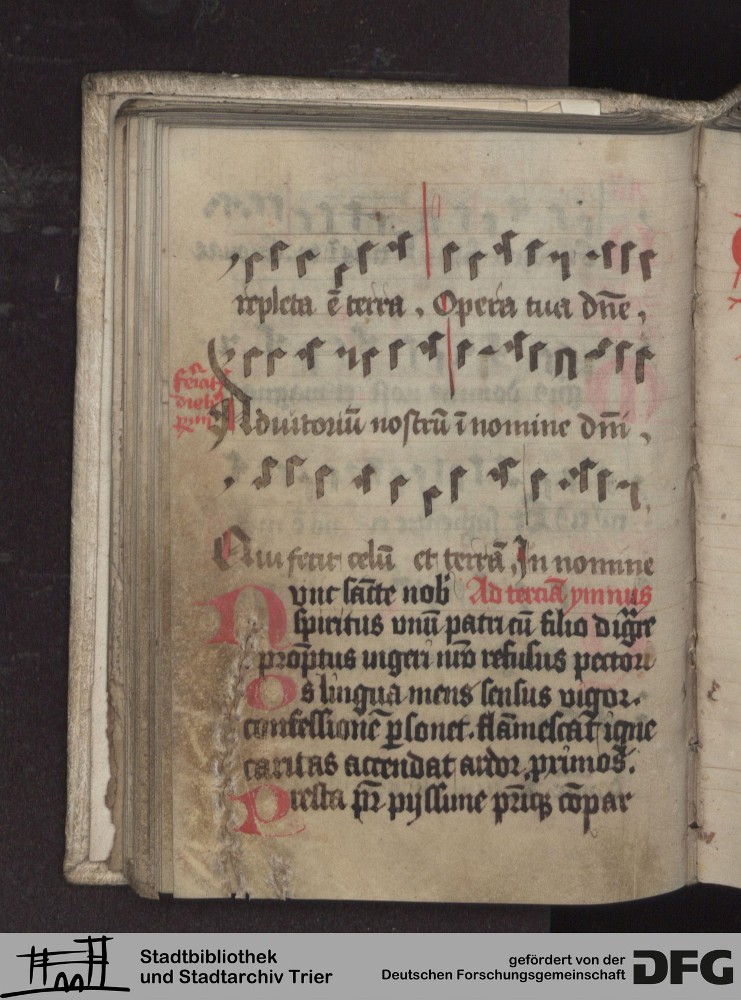 repleta ē terra, Opera tua dn̄e,
Adiutoriū nostrū ī nomine dn̄i,
Qui fecit celū et terrā, In nomine
Nunc sācte nob Ad terciā ymnus
spiritus unū patri cū filio dig
prōptus ingeri nr̄o refusus pectori
Os lingua mens sensus vigor.
confessionē ꝑsonet. flāmescat igne
caritas accendat ardor primos.
Presta pr̄ pijssime pr̄iqꝫ cōpar
Stadtbibliothek
und Stadtarchiv Trier
gefördert von der
Deutschen Forschungsgemeinschaft
DFG